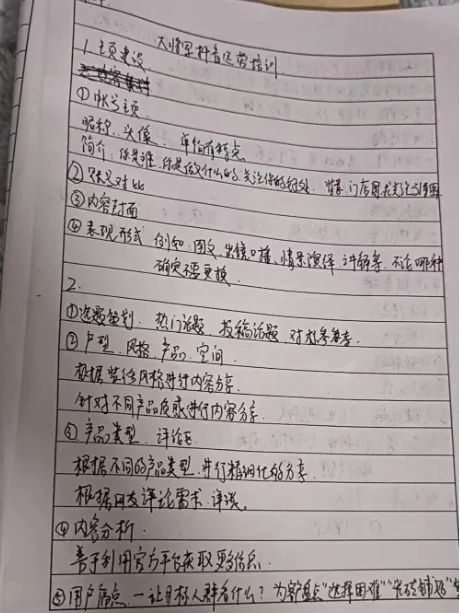 大将军抖音运营培训
1.主页建设
①账号主页
昵称、头像、单怕有特点
简介:你是谁,你是做什么的,关注你的好处. 背景:门店图关注
②账号对比
③内容封面
④表现形式 例如:图文,出镜口播、情景演绎 讲解等.不论哪种
确定不要更换
2.
①选题策划. 热门话题 投稿话题 对标参考
②户型.风格.产品.空间
根据装修风格进行内容分享.
针对不同产品质感进行内容分享.
③产品类型. 评论区
根据不同的产品类型.进行精细化的分享.
根据网友评论需求.详谈.
④内容分析.
善于利用官方平台获取更多信息.
⑤用户痛点.一让目标人群看什么?为客户盘点"选择困难""瓷砖铺贴"